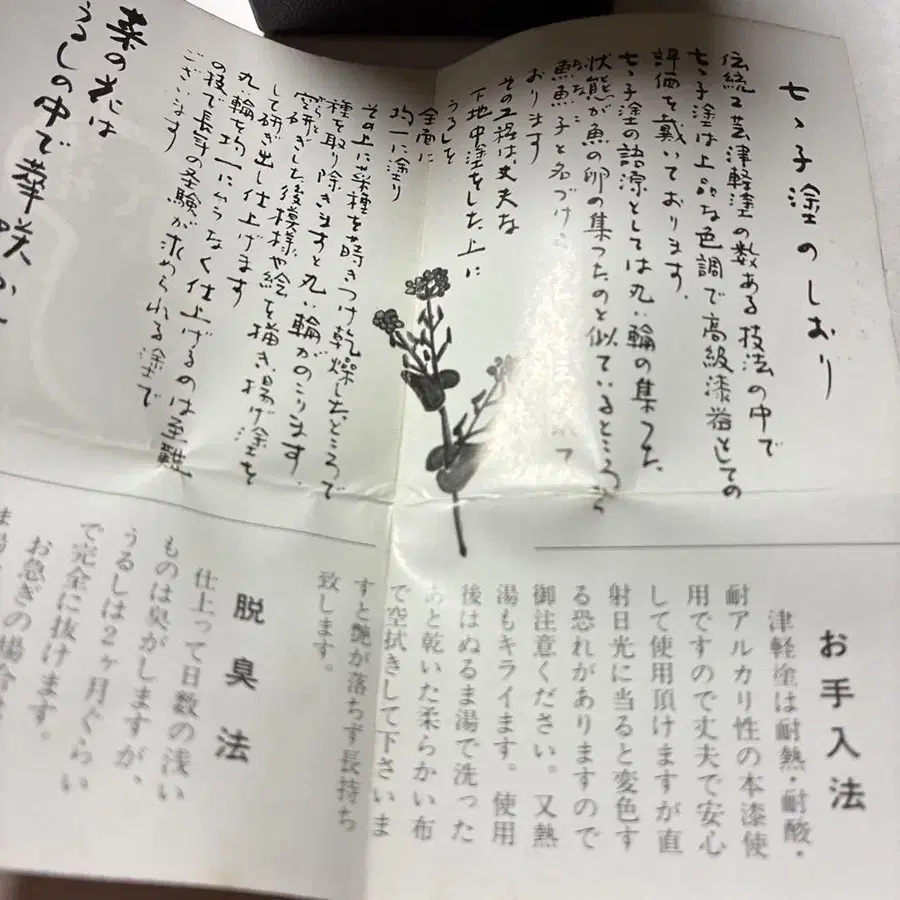 七、子塗のしおり
伝統工芸津軽塗の数ある技法の中で
七、子塗は上品な色調で高級漆器としての
評価を戴いております。
七、子塗の語源としては丸い輪の集った
状態が魚の卵の集ったのと似ているところから
魚子と名づけら て
おります
その工程は丈夫な
下地中塗をした上に
うるしを
全面に
均一に塗り
その上に菜種を蒔きつけ乾燥したところで
種を取り除きますと丸い輪がのこります。
研ぎした後模様や絵を描き揚げ塗を
して研ぎ出し仕上げます
丸い輪を均一に なく仕上げるのは至難
の技で長年の経験が求められる塗で
ございます
菜の花は
うるしの中で華咲か
お手入法
津軽塗は耐熱・耐酸・
耐アルカリ性の本漆使
用ですので丈夫で安心
して使用頂けますが直
射日光に当ると変色す
る恐れがありますので
御注意ください。又熱
湯もキライます。使用
後はぬるま湯で洗った
あと乾いた柔らかい布
で空拭きして下さいま
すと艶が落ちず長持ち
致します。
脱臭法
仕上って日数の浅い
ものは臭がしますが、
うるしは2ヶ月ぐらい
で完全に抜けます。
お急ぎの場合